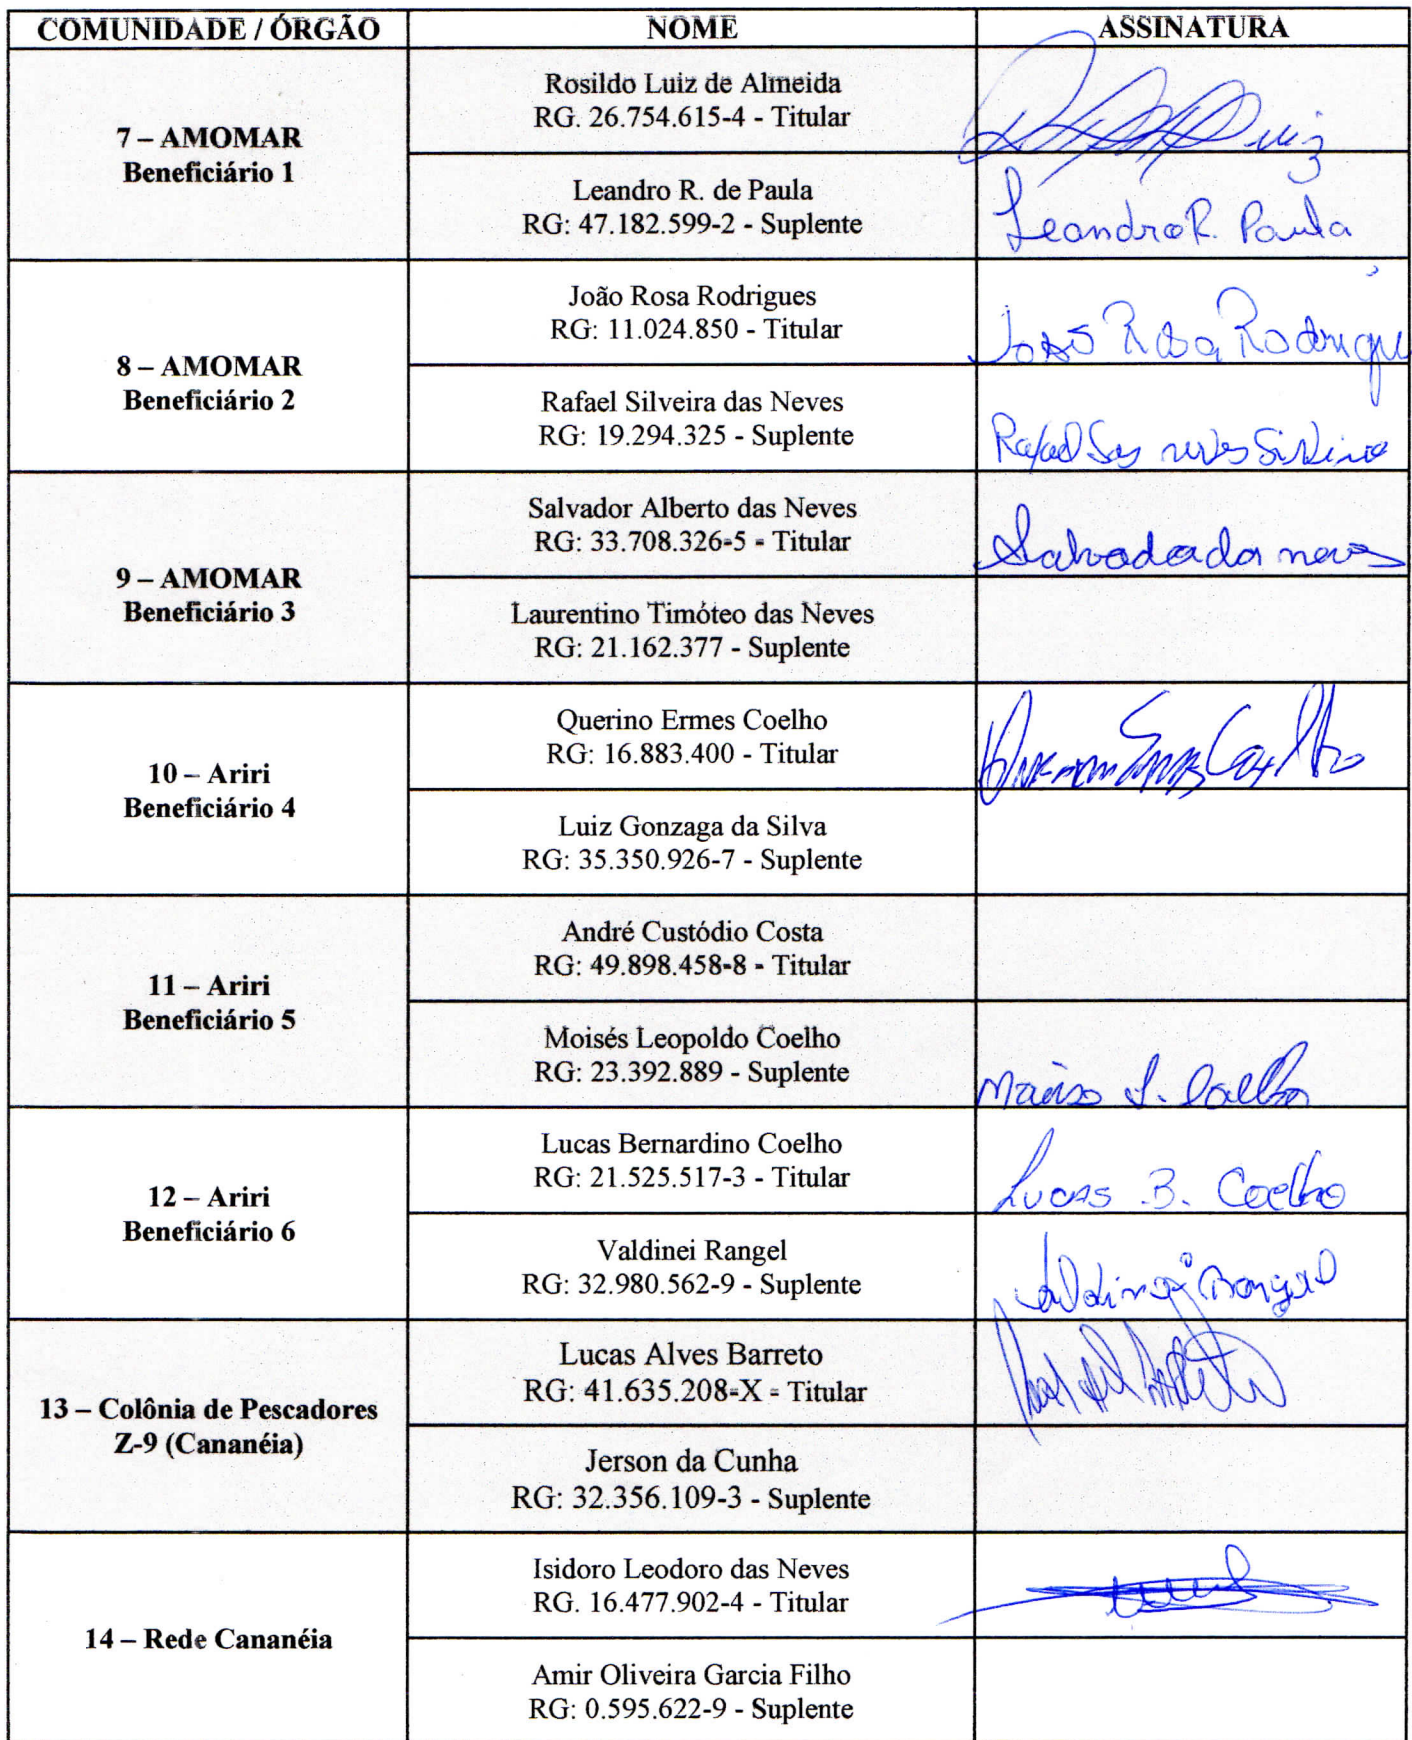 COMUNIDADE / ÓRGÃO NOME ASSINATURA
7 – AMOMAR
Beneficiário 1
Rosildo Luiz de Almeida
RG. 26.754.615-4 - Titular
Luiz
Leandro R. de Paula
RG: 47.182.599-2 - Suplente
Leandro R. Paula
8 – AMOMAR
Beneficiário 2
João Rosa Rodrigues
RG: 11.024.850 - Titular
João Rosa Rodrigu
Rafael Silveira das Neves
RG: 19.294.325 - Suplente
Rafael das neves Silveira
9 – AMOMAR
Beneficiário 3
Salvador Alberto das Neves
RG: 33.708.326-5 - Titular
Salvado da neves
Laurentino Timóteo das Neves
RG: 21.162.377 - Suplente
10 – Ariri
Beneficiário 4
Querino Ermes Coelho
RG: 16.883.400 - Titular
Coelho
Luiz Gonzaga da Silva
RG: 35.350.926-7 - Suplente
11 – Ariri
Beneficiário 5
André Custódio Costa
RG: 49.898.458-8 - Titular
Moisés Leopoldo Coelho
RG: 23.392.889 - Suplente
L. Coelho
12 – Ariri
Beneficiário 6
Lucas Bernardino Coelho
RG: 21.525.517-3 - Titular
Lucas B. Coelho
Valdinei Rangel
RG: 32.980.562-9 - Suplente
Valdinei Rangel
13 – Colônia de Pescadores
Z-9 (Cananéia)
Lucas Alves Barreto
RG: 41.635.208-X - Titular
Jerson da Cunha
RG: 32.356.109-3 - Suplente
14 – Rede Cananéia
Isidoro Leodoro das Neves
RG. 16.477.902-4 - Titular
Amir Oliveira Garcia Filho
RG: 0.595.622-9 - Suplente